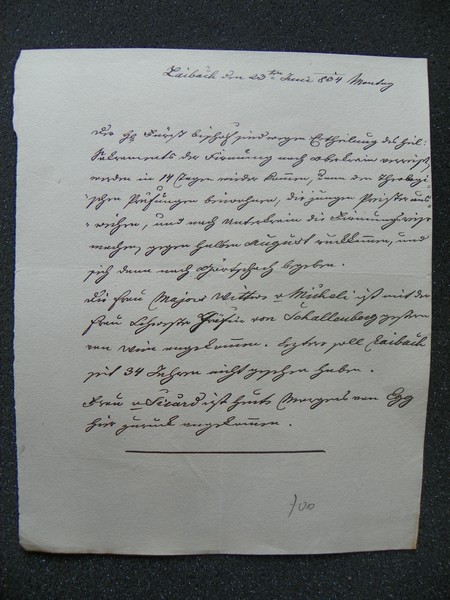 Laibach den 23ten Juni 1804 Montag
Der H. Fürst bischof sind wegen Ertheilung des heil:
Sakraments der Firmung nach Oberkrain verreist,
werden in 14 Tagen wieder kommen, dann den Theologi-
schen Prüfungen beiwohnen, die jungen Priester aus-
weihen, und nach Unterkrain die Firmungsreise
machen, gegen halben August rückkommen, und
sich dann nach Görtschach begeben.
Die Frau Major Wittwe v Micheli ist mit der
Frau Gräfin von Schallenberg gestern
von Wien angekommen. Letztere soll Laibach
seit 34 Jahren nicht gesehen haben.
Frau v Sicard ist heute Morgens von Egg
hier zurück angekommen.
700